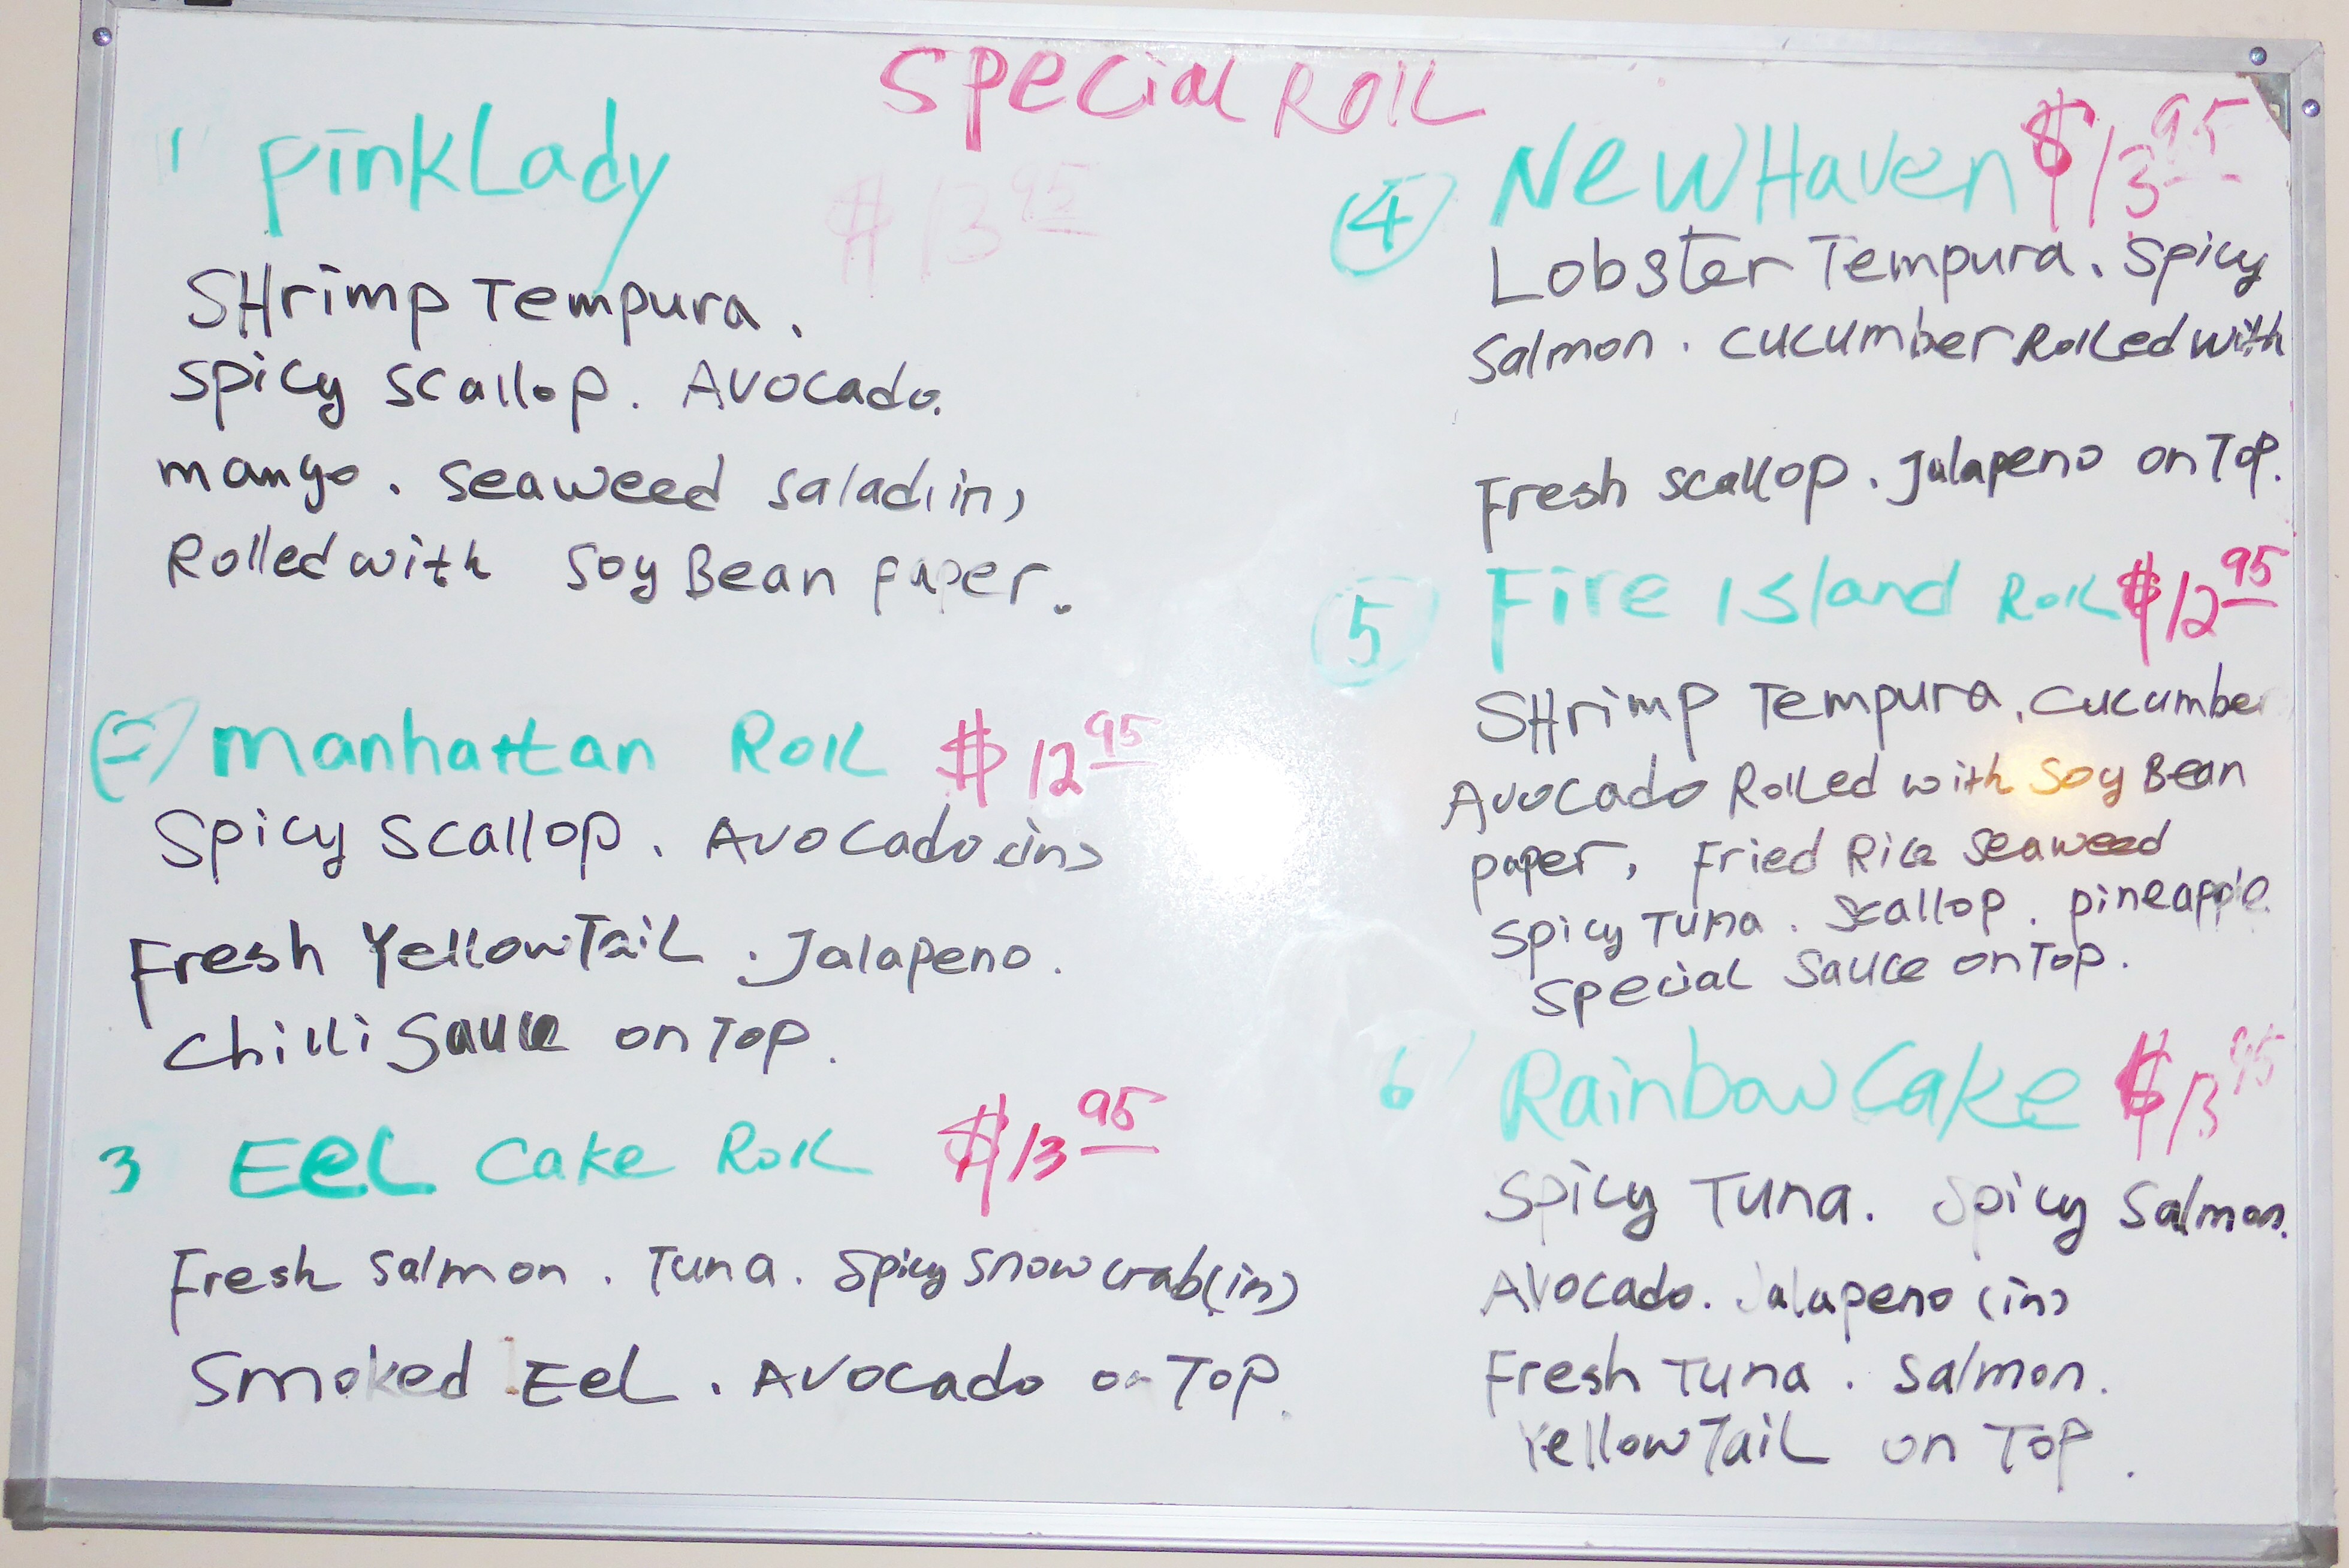 Special Roll
1 Pink Lady $13.95
Shrimp Tempura.
Spicy Scallop. Avocado.
mango. Seaweed Salad(in)
Rolled with Soy Bean paper.
2 Manhattan Roll $12.95
Spicy Scallop. Avocado(in)
Fresh Yellow Tail. Jalapeno.
Chilli Sauce on Top.
3 Eel Cake Roll $13.95
Fresh Salmon. Tuna. Spicy Snow crab(in)
Smoked Eel. Avocado on Top.
4 New Haven $13.95
Lobster Tempura. Spicy
Salmon. cucumber Rolled with
Fresh Scallop. Jalapeno on Top.
5 Fire Island Roll $12.95
Shrimp Tempura. cucumber
Avocado Rolled with Soy Bean
paper, Fried Rice Seaweed
Spicy Tuna. Scallop. pineapple
Special Sauce on Top.
6 Rainbow Cake $13.95
Spicy Tuna. Spicy Salmon.
Avocado. Jalapeno (in)
Fresh Tuna. Salmon.
Yellow Tail on Top.